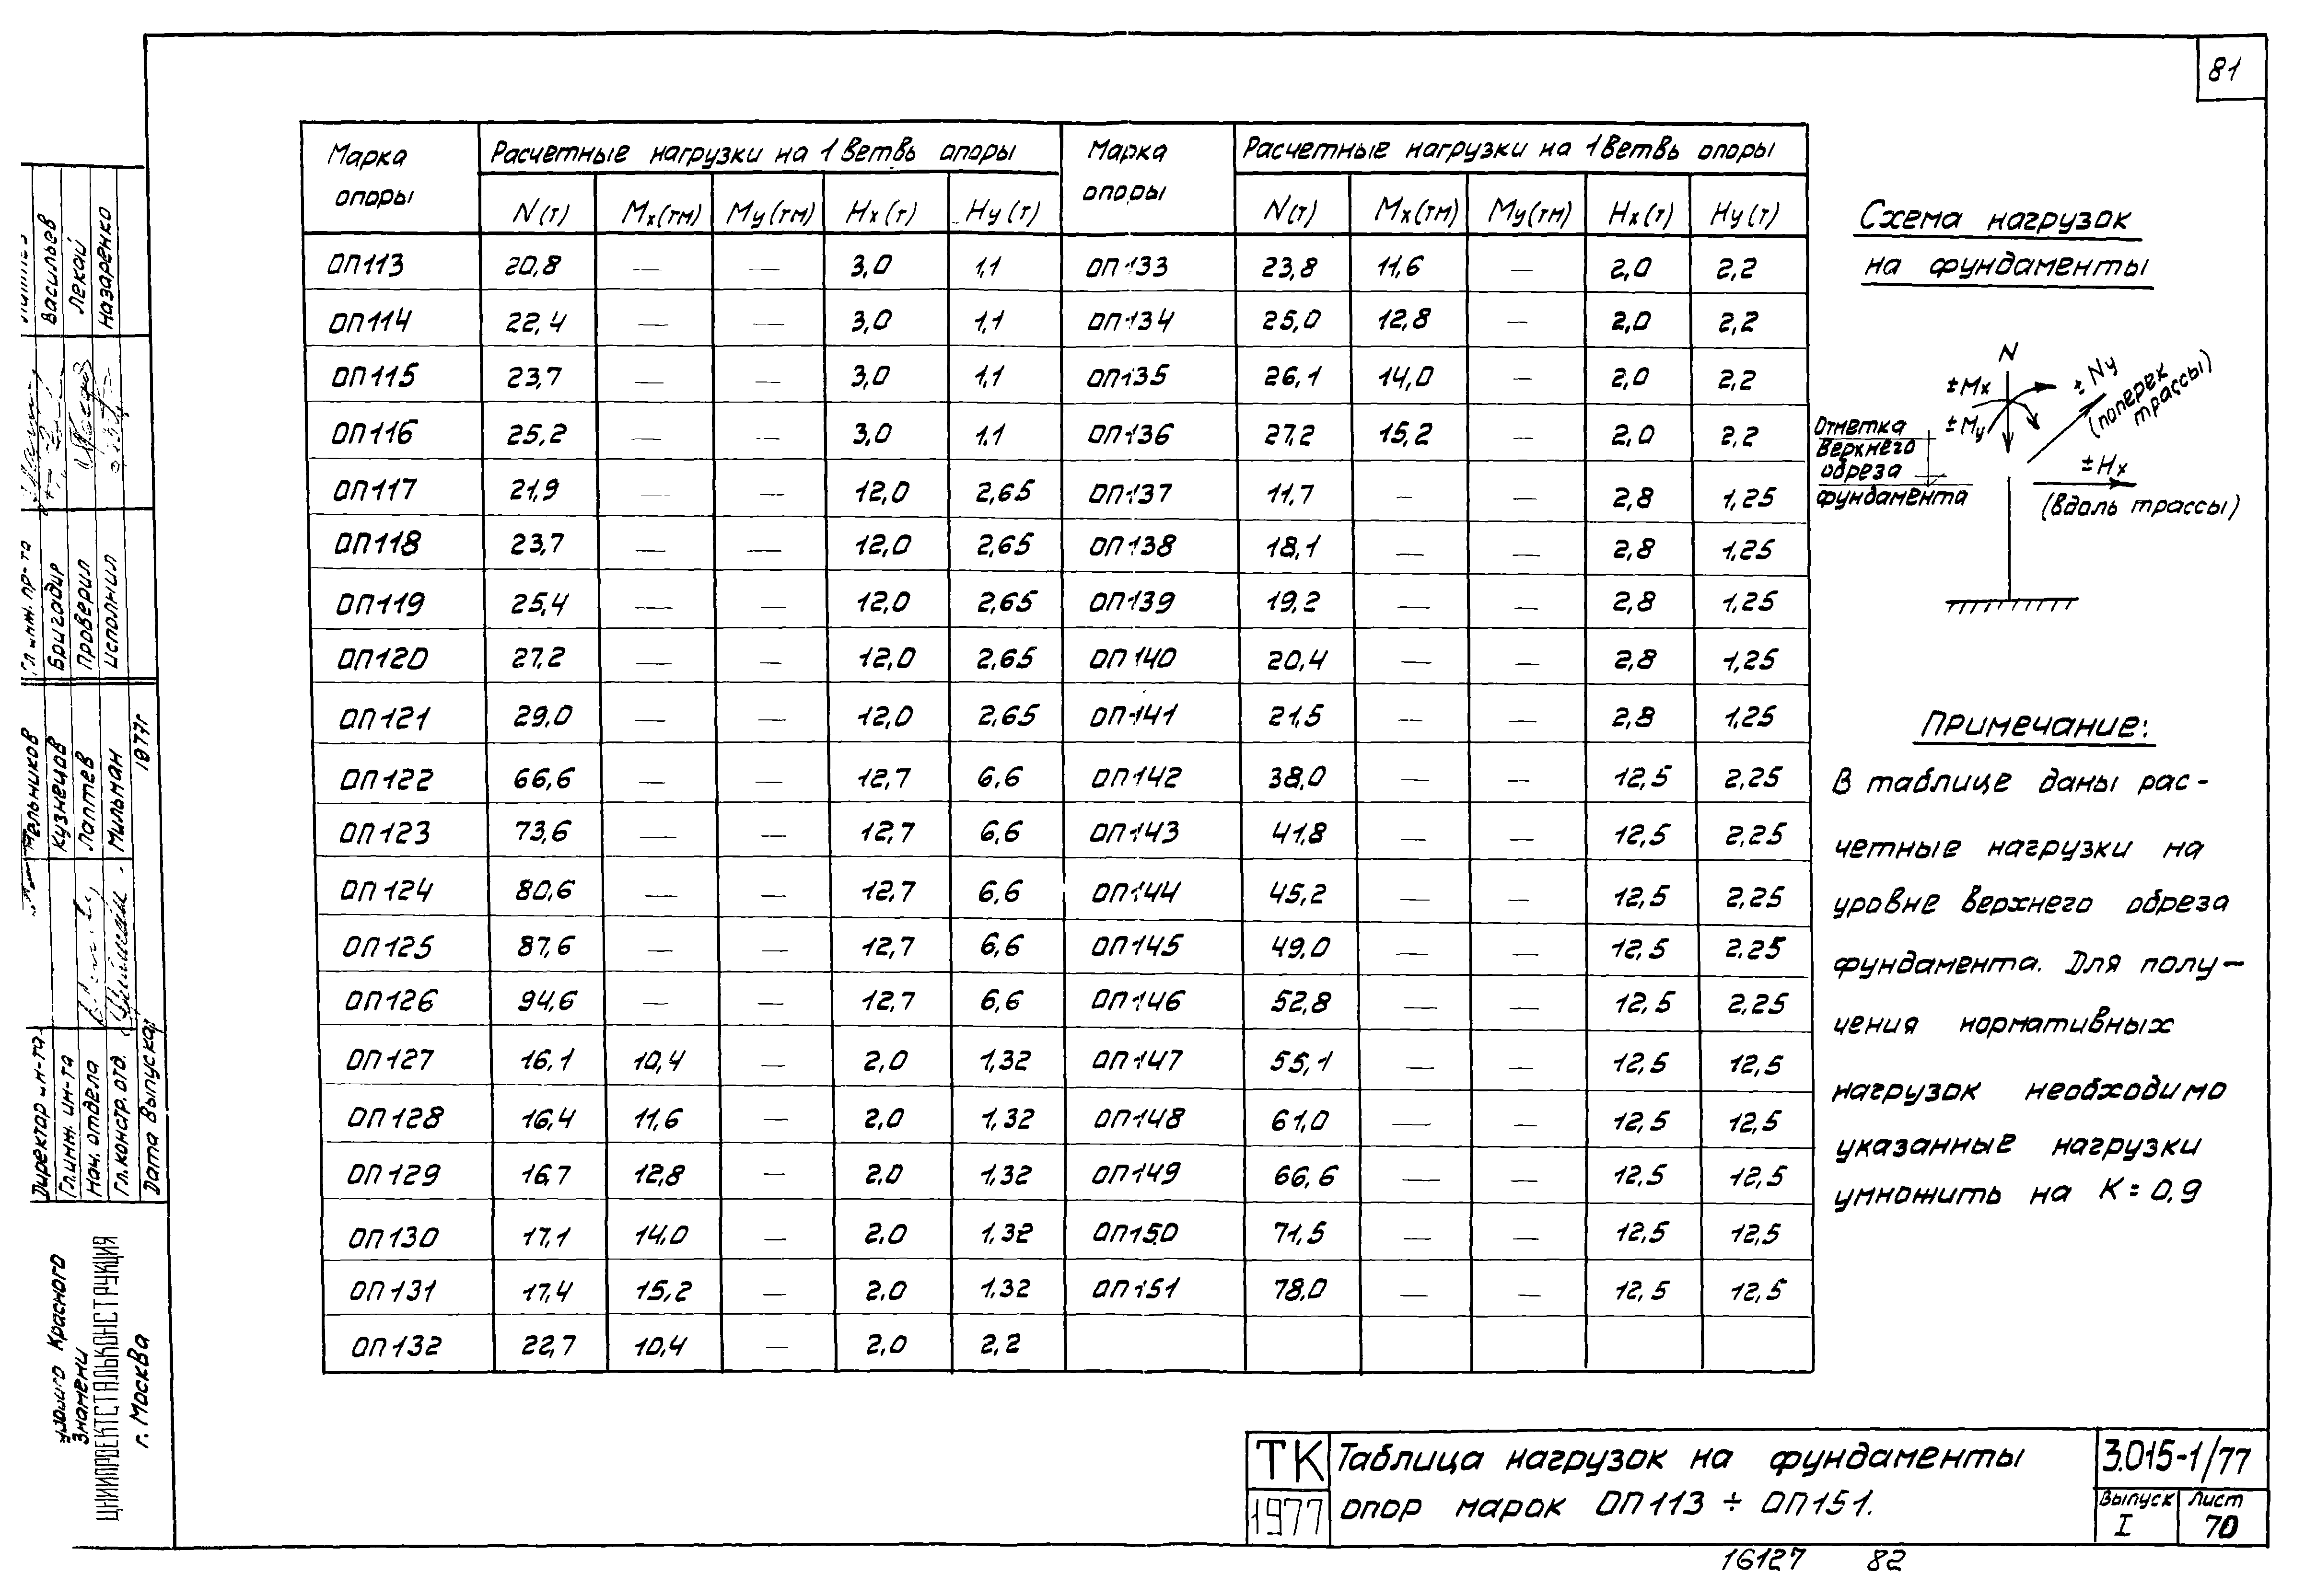 81
Марка опоры | Расчетные нагрузки на 1 ветвь опоры | Марка опоры | Расчетные нагрузки на 1 ветвь опоры
N(т) Mx(тм) My(тм) Hx(т) Hy(т) | N(т) Mx(тм) My(тм) Hx(т) Hy(т)
ОП113 20,8 — — 3,0 1,1 ОП133 23,8 11,6 — 2,0 2,2
ОП114 22,4 — — 3,0 1,1 ОП134 25,0 12,8 — 2,0 2,2
ОП115 23,7 — — 3,0 1,1 ОП135 26,1 14,0 — 2,0 2,2
ОП116 25,2 — — 3,0 1,1 ОП136 27,2 15,2 — 2,0 2,2
ОП117 21,9 — — 12,0 2,65 ОП137 11,7 — — 2,8 1,25
ОП118 23,7 — — 12,0 2,65 ОП138 18,1 — — 2,8 1,25
ОП119 25,4 — — 12,0 2,65 ОП139 19,2 — — 2,8 1,25
ОП120 27,2 — — 12,0 2,65 ОП140 20,4 — — 2,8 1,25
ОП121 29,0 — — 12,0 2,65 ОП141 21,5 — — 2,8 1,25
ОП122 66,6 — — 12,7 6,6 ОП142 38,0 — — 12,5 2,25
ОП123 73,6 — — 12,7 6,6 ОП143 41,8 — — 12,5 2,25
ОП124 80,6 — — 12,7 6,6 ОП144 45,2 — — 12,5 2,25
ОП125 87,6 — — 12,7 6,6 ОП145 49,0 — — 12,5 2.25
ОП126 94,6 — — 12,7 6,6 ОП146 52,8 — — 12,5 2,25
ОП127 16,1 10,4 2,0 1,32 ОП147 55,1 — — 12,5 12,5
ОП128 16,4 11,6 — 2,0 1,32 ОП148 61,0 — — 12,5 12,5
ОП129 16,7 12,8 — 2,0 1,32 ОП149 66,6 — — 12,5 12,5
ОП130 17,1 14,0 — 2,0 1,32 ОП150 71,5 — — 12,5 12,5
ОП131 17,4 15,2 — 2,0 1,32 ОП151 78,0 — — 12,5 12,5
ОП132 22,7 10,4 — 2,0 2,2
Схема нагрузок
на фундаменты
N
±Mx
±My
±Ny
(поперек
трассы)
±Hx
(вдоль трассы)
Отметка
верхнего
обреза
фундамента
Примечание:
В таблице даны рас-
четные нагрузки на
уровне верхнего обреза
фундамента. Для полу-
чения нормативных
нагрузок необходимо
указанные нагрузки
умножить на К = 0,9
Гл. инж. пр-та
Бригадир Васильев
Проверил Лекай
Исполнил Назаренко
Директор ин-та Мельников
Гл. инж. ин-та Кузнецов
Нач. отдела Лаптев
Гл. констр. отд. Мильман
Дата выпуска 1977г
Красного
Знамени
ЦНИИПРОЕКТСТАЛЬКОНСТРУКЦИЯ
г. Москва
ТК
1977
Таблица нагрузок на фундаменты
опор марок ОП113 ÷ ОП151.
3.015-1/77
Выпуск I
Лист 70
16127 82